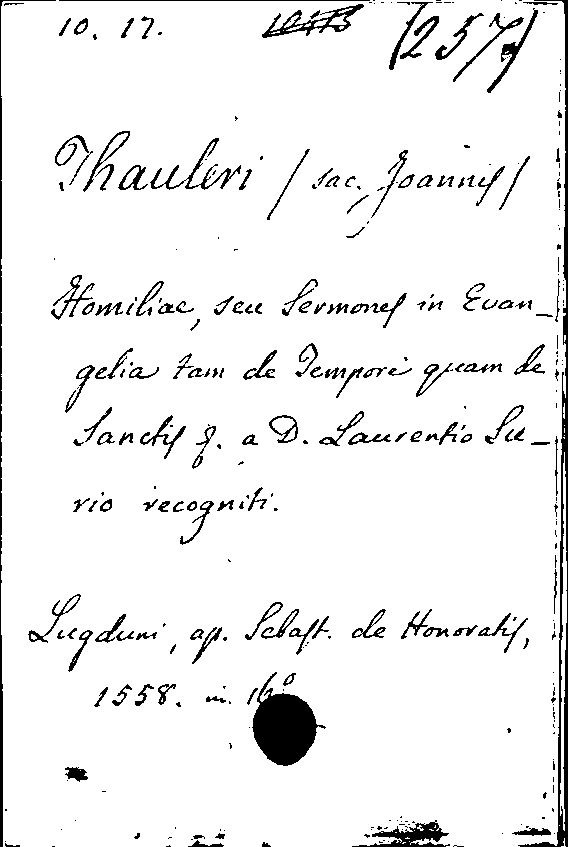 10. 17. (257)
Thauleri / sac. Joannes /
Homiliae, seu Sermones in Evan-
gelia tam de Tempore quam de
Sanctis q. a D. Laurentio Su-
rio recogniti.
Lugduni, ap. Sebast. de Honoratis,
1558. in 16°